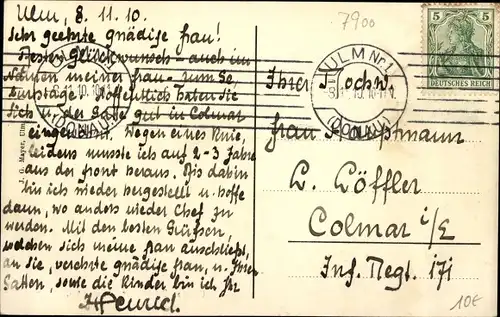 Ulm, 8.11.10.
Sehr geehrte gnädige Frau!
Besten Glückwunsch – auch im
Namen meiner Frau – zum Ge
burtstage! Hoffentlich haben Sie
sich u. der Gatte gut in Colmar
eingewöhnt. Wegen eines Knie,
leidens musste ich auf 2-3 Jahre
aus der Front heraus. Bis dahin
bin ich wieder hergestellt u. hoffe
dann, wo anders wieder Chef zu
werden. Mit den besten Grüssen,
welchen sich meine Frau anschliesst,
an Sie, verehrte gnädige Frau, u. Ihren
Gatten, sowie die Kinder bin ich Ihr
J. G. Mayer, Ulm
7900
5 5
DEUTSCHES REICH
ULM No 1
(DONAU)
Ihrer Hochw.
Frau Hauptmann
L. Löffler
Colmar i/E
Inf. Regt. 171
10€